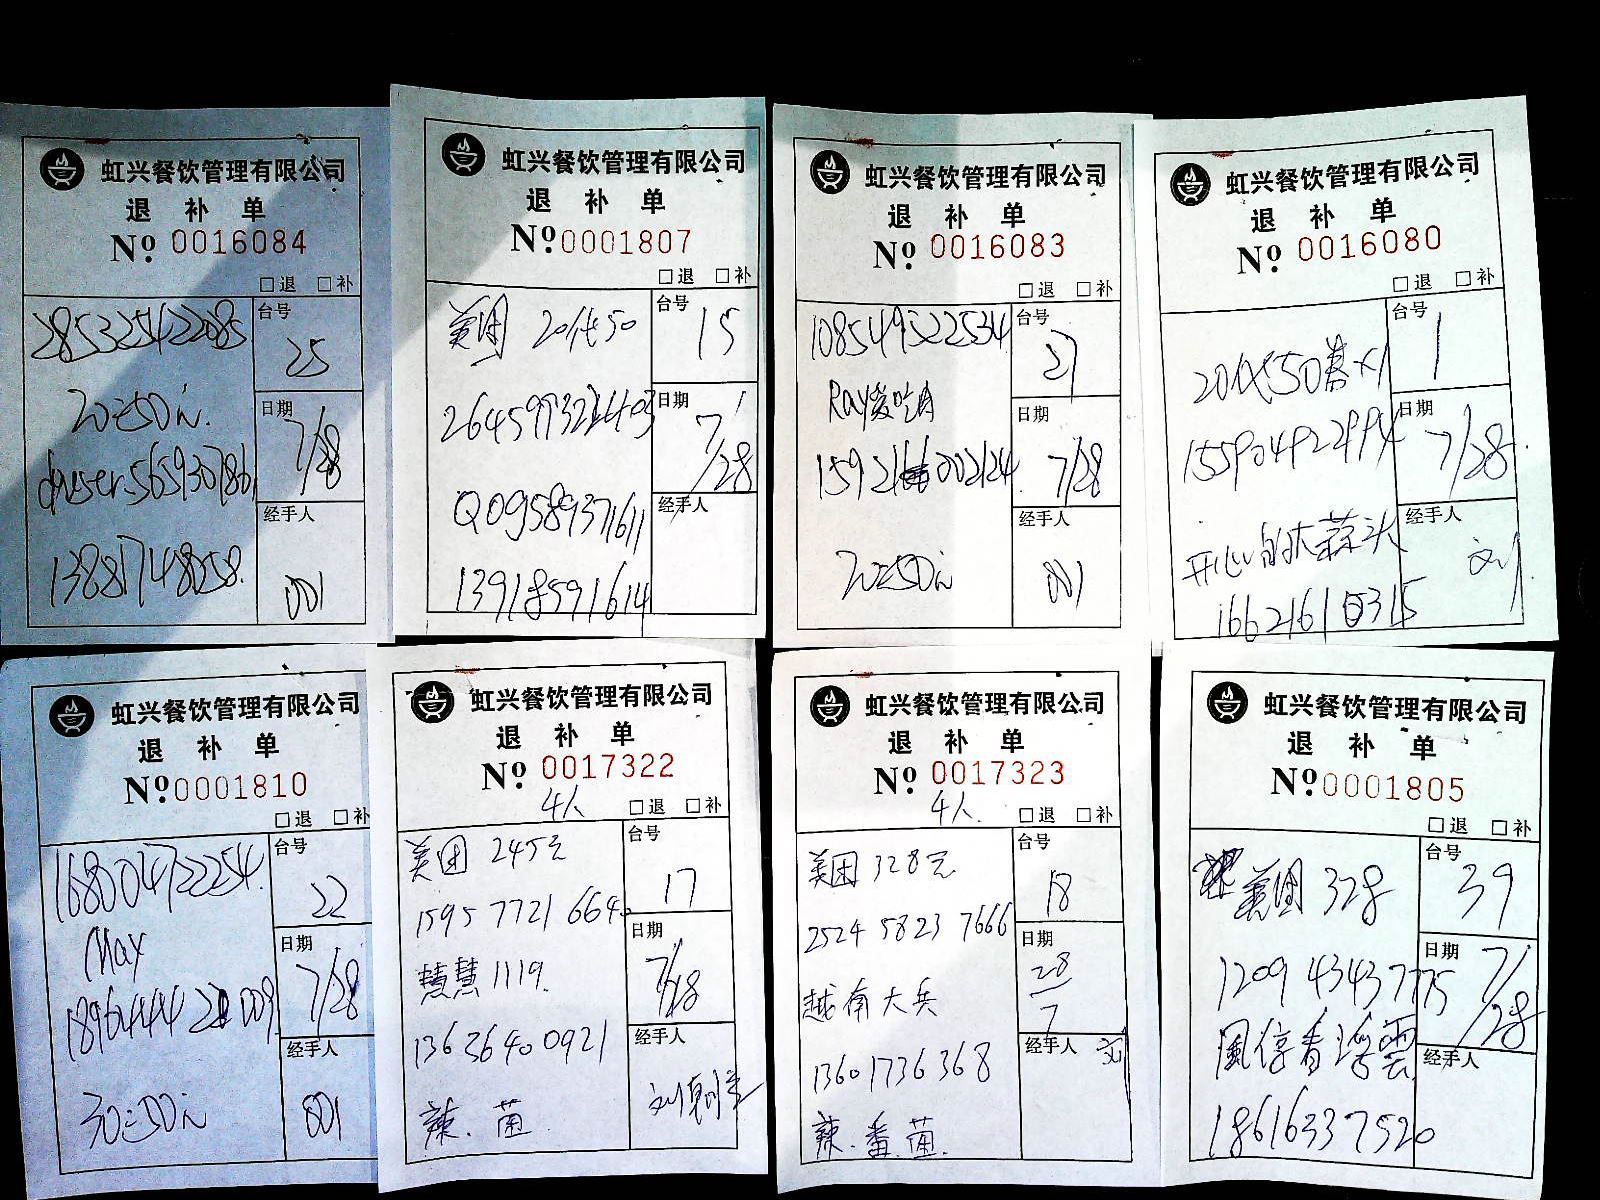 虹兴餐饮管理有限公司
退 补 单
Nº 0016084
□退 □补
285325422085
台号
25
20=50元
日期
7/28
13881748258
经手人
001
虹兴餐饮管理有限公司
退 补 单
Nº 0001807
□退 □补
美团 20代50
台号
15
日期
7/28
Q09589371611
经手人
13918591614
虹兴餐饮管理有限公司
退 补 单
Nº 0016083
□退 □补
108549522534
台号
27
Ray爱吃肉
日期
7/28
经手人
20=50元
001
虹兴餐饮管理有限公司
退 补 单
Nº 0016080
□退 □补
台号
1
155904922994
日期
7/28
开心的大蒜头
经手人
虹兴餐饮管理有限公司
退 补 单
Nº 0001810
□退 □补
168004722254
台号
22
Max
日期
7/28
经手人
001
虹兴餐饮管理有限公司
退 补 单
Nº 0017322
4人
□退 □补
美团 245元
台号
17
1595 7721 6640
日期
7/28
慧慧1119
13636400921
经手人
辣.菌
虹兴餐饮管理有限公司
退 补 单
Nº 0017323
4人.
□退 □补
美团 328元
台号
18
2524 5823 7666
日期
28/7
越南大兵
13601736368
经手人
辣.番.菌.
虹兴餐饮管理有限公司
退 补 单
Nº 0001805
□退 □补
美团 328
台号
39
1209 4343 7775
日期
7/28
经手人
18616337520